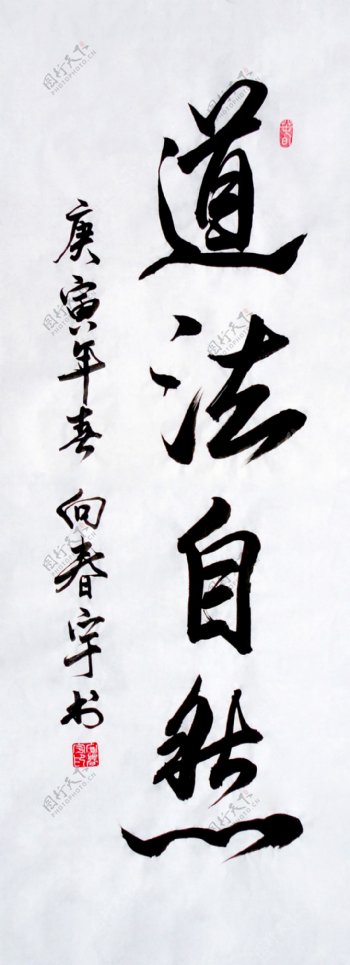 道法自然
庚寅年春 向春宇书
图行天下 PHOTOPHOTO.CN